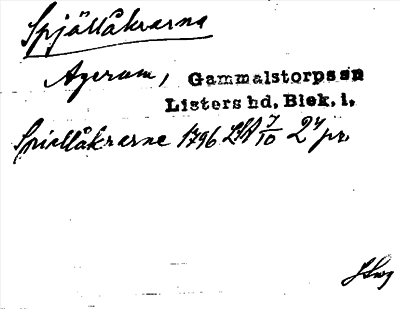 Spjällåkrarna
Agerum, Gammalstorps sn
Listers hd, Blek. l.
Spiellåkrarne 1796 LSA 7/10 24 pr.